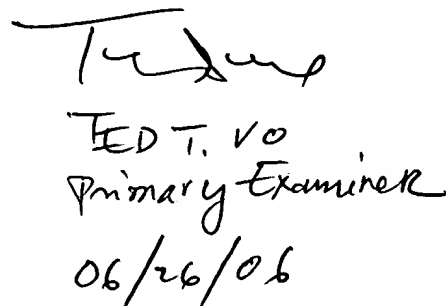 TED T. VO
Primary Examiner
06/26/06